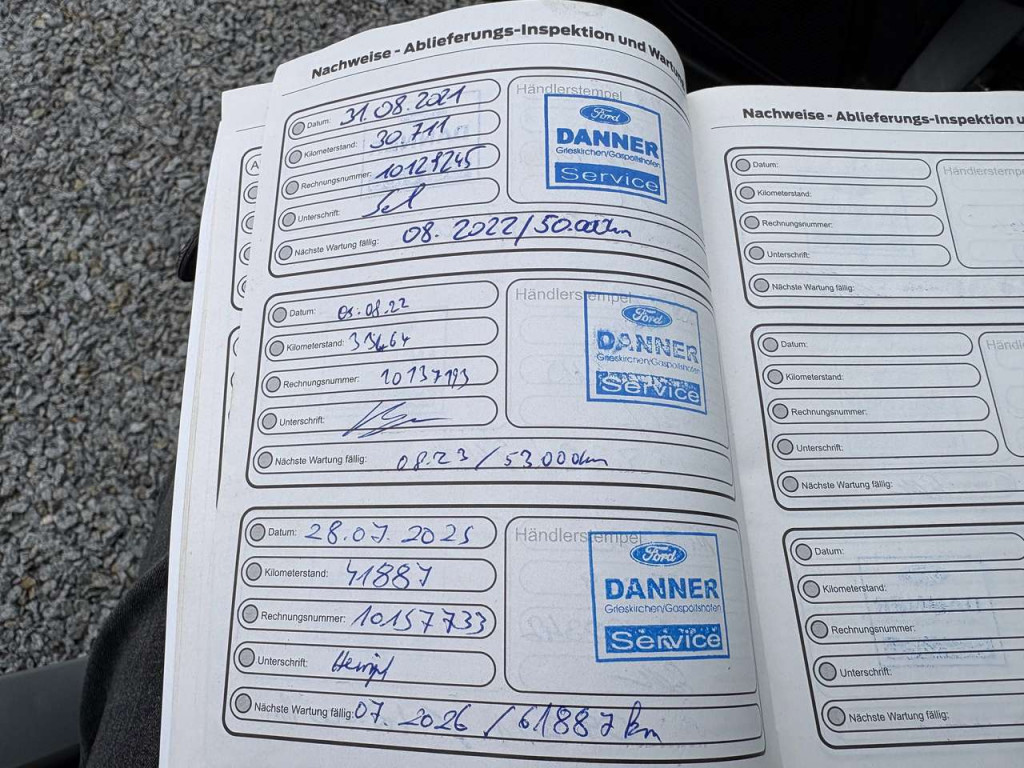 Nachweise - Ablieferungs-Inspektion und Wartu
Datum: 31.08.2021
Kilometerstand: 30.711
Rechnungsnummer: 10129245
Unterschrift:
Nächste Wartung fällig: 08. 2022/50.000km
Händlerstempel
Ford
DANNER
Grieskirchen/Gaspoltshofen
Service
Datum: 05.08.22
Kilometerstand: 33464
Rechnungsnummer: 10137193
Unterschrift:
Nächste Wartung fällig: 08.23 / 53.000km
Händlerstempel
Ford
DANNER
Grieskirchen/Gaspoltshofen
Service
Datum: 28.07.2025
Kilometerstand: 41887
Rechnungsnummer: 10157733
Unterschrift:
Nächste Wartung fällig: 07. 2026 / 61887 km
Händlerstempel
Ford
DANNER
Grieskirchen/Gaspoltshofen
Service
Nachweise - Ablieferungs-Inspektion u
Datum:
Kilometerstand:
Rechnungsnummer:
Unterschrift:
Nächste Wartung fällig:
Händlerstempe
Datum:
Kilometerstand:
Rechnungsnummer:
Unterschrift:
Nächste Wartung fällig:
Händ
Datum:
Kilometerstand:
Rechnungsnummer:
Unterschrift:
Nächste Wartung fällig: